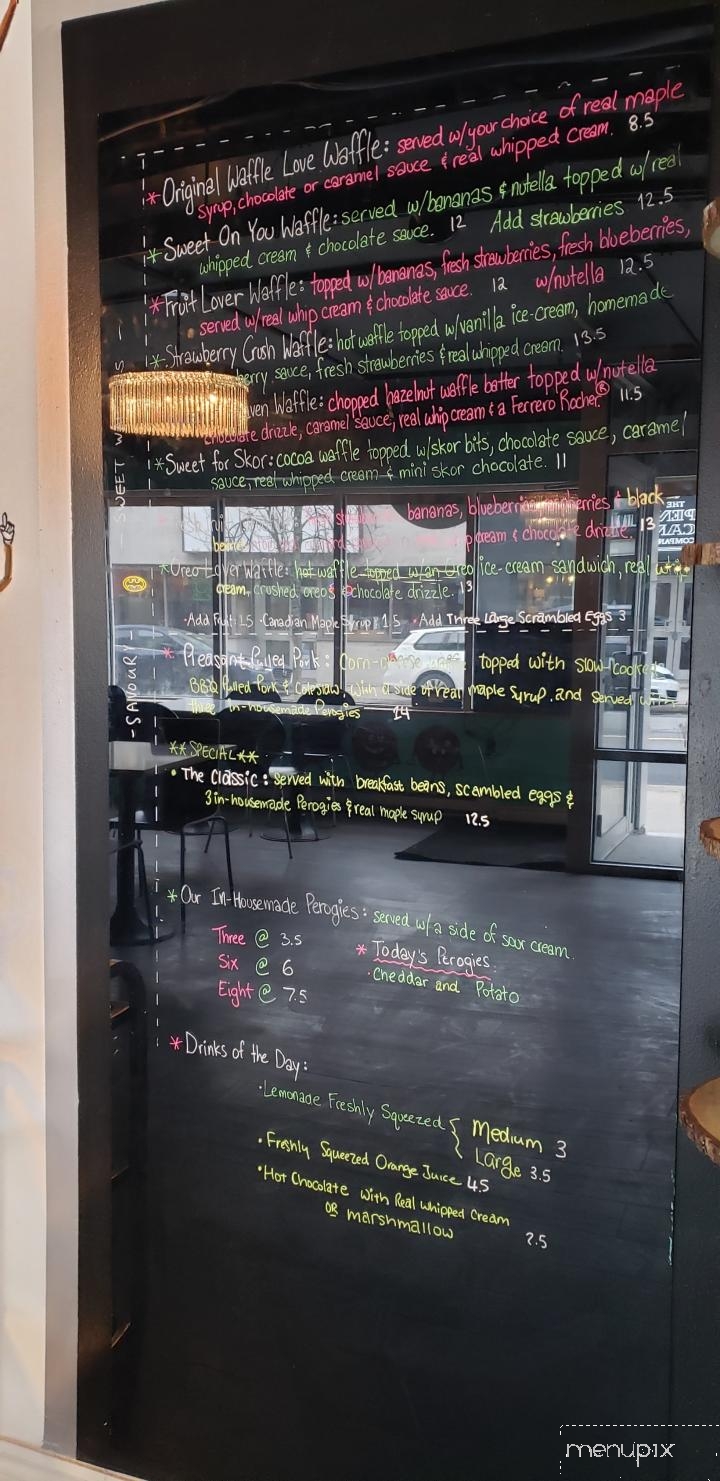 *Original Waffle Love Waffle: served w/your choice of real maple
syrup, chocolate or caramel sauce & real whipped cream. 8.5
*Sweet On You Waffle: served w/bananas & nutella topped w/real
whipped cream & chocolate sauce. 12 Add strawberries 12.5
*Fruit Lover Waffle: topped w/bananas, fresh strawberries, fresh blueberries,
served w/real whip cream & chocolate sauce. 12 w/nutella 12.5
*Strawberry Crush Waffle: hot waffle topped w/vanilla ice-cream, homemade
sauce, fresh strawberries & real whipped cream. 13.5
Waffle: chopped hazelnut waffle batter topped w/nutella
chocolate drizzle, caramel sauce, real whip cream & a Ferrero Rocher® 11.5
*Sweet for Skor: cocoa waffle topped w/skor bits, chocolate sauce, caramel
sauce, real whipped cream & mini skor chocolate. 11
bananas, blueberries, & black
cream & chocolate drizzle. 13
*Oreo Lover Waffle: hot waffle topped w/an Oreo ice-cream sandwich, real
cream, crushed oreos & chocolate drizzle. 13
·Add Fruit 1.5 ·Canadian Maple Syrup 1.5 ·Add Three Large Scrambled Eggs 3
* Pleasant Pulled Pork: topped with slow-cooked
BBQ Pulled Pork & Coleslaw, with a side of real maple syrup, and served with
three in-housemade Perogies 14
SWEET
-SAVOURY-
**SPECIAL**
• The Classic: served with breakfast beans, scambled eggs &
3 in-housemade Perogies & real maple syrup 12.5
*Our In-Housemade Perogies: served w/a side of sour cream.
Three @ 3.5
Six @ 6
Eight @ 7.5
* Today's Perogies
·Cheddar and Potato
*Drinks of the Day:
·Lemonade Freshly Squeezed { Medium 3
Large 3.5
·Freshly Squeezed Orange Juice 4.5
·Hot Chocolate with Real Whipped Cream
OR marshmallow 2.5
menupix